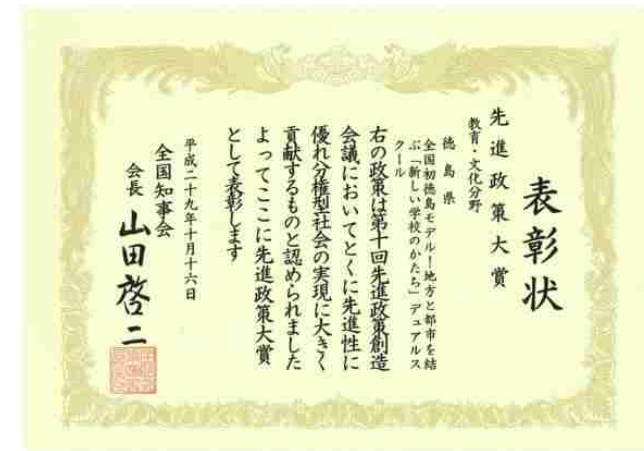 表彰状
先進政策大賞
教育・文化分野
徳島県
全国初徳島モデル!地方と都市を結
ぶ「新しい学校のかたち」デュアルス
クール
右の政策は第十回先進政策創造
会議においてとくに先進性に
優れ分権型社会の実現に大きく
貢献するものと認められました
よってここに先進政策大賞
として表彰します
平成二十九年十月十六日
全国知事会
会長 山田啓二